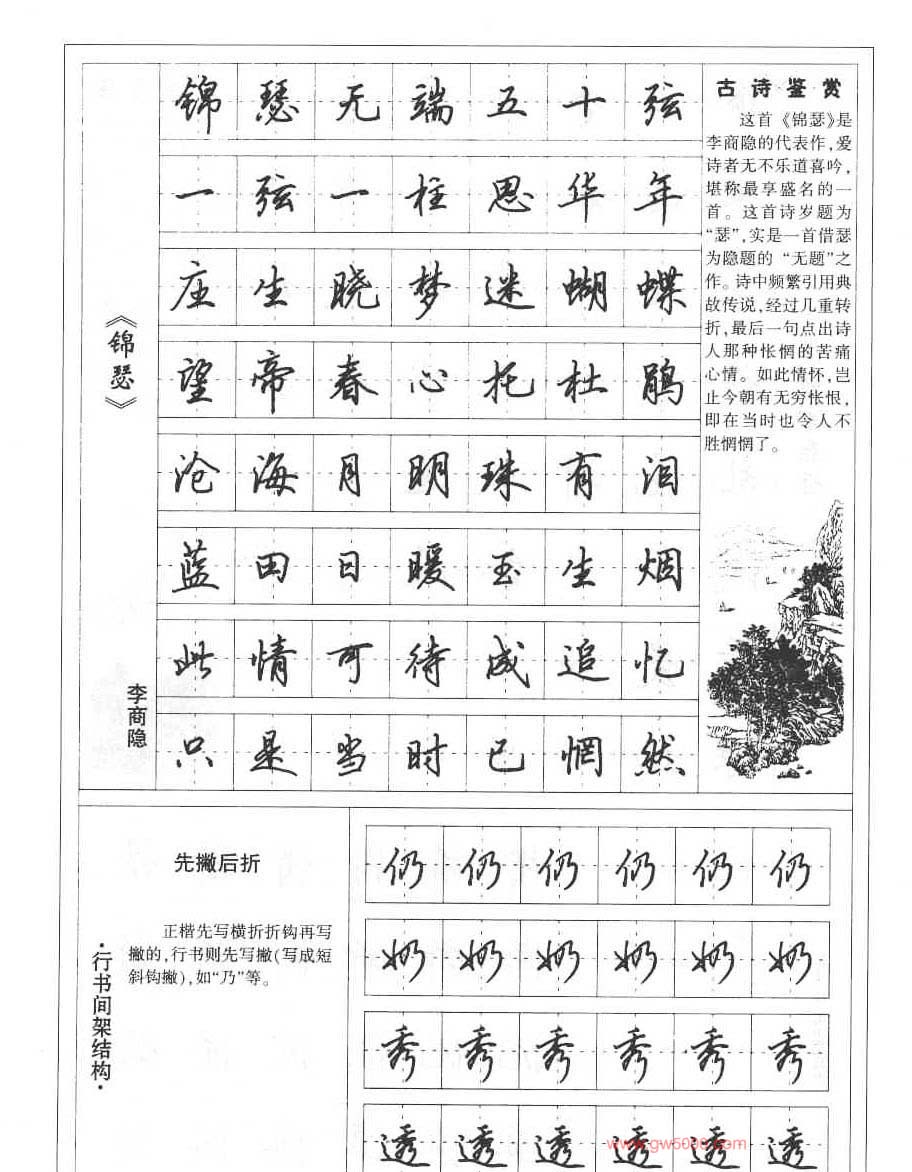 《锦瑟》
李商隐
锦瑟无端五十弦
一弦一柱思华年
庄生晓梦迷蝴蝶
望帝春心托杜鹃
沧海月明珠有泪
蓝田日暖玉生烟
此情可待成追忆
只是当时已惘然
古诗鉴赏
这首《锦瑟》是
李商隐的代表作,爱
诗者无不乐道喜吟,
堪称最享盛名的一
首。这首诗岁题为
“瑟”,实是一首借瑟
为隐题的“无题”之
作。诗中频繁引用典
故传说,经过几重转
折,最后一句点出诗
人那种怅惘的苦痛
心情。如此情怀,岂
止今朝有无穷怅恨,
即在当时也令人不
胜惘惘了。
·行书间架结构·
先撇后折
正楷先写横折折钩再写
撇的,行书则先写撇(写成短
斜钩撇),如“乃”等。
仍仍仍仍仍仍
奶奶奶奶奶奶
秀秀秀秀秀秀
透透透透透透